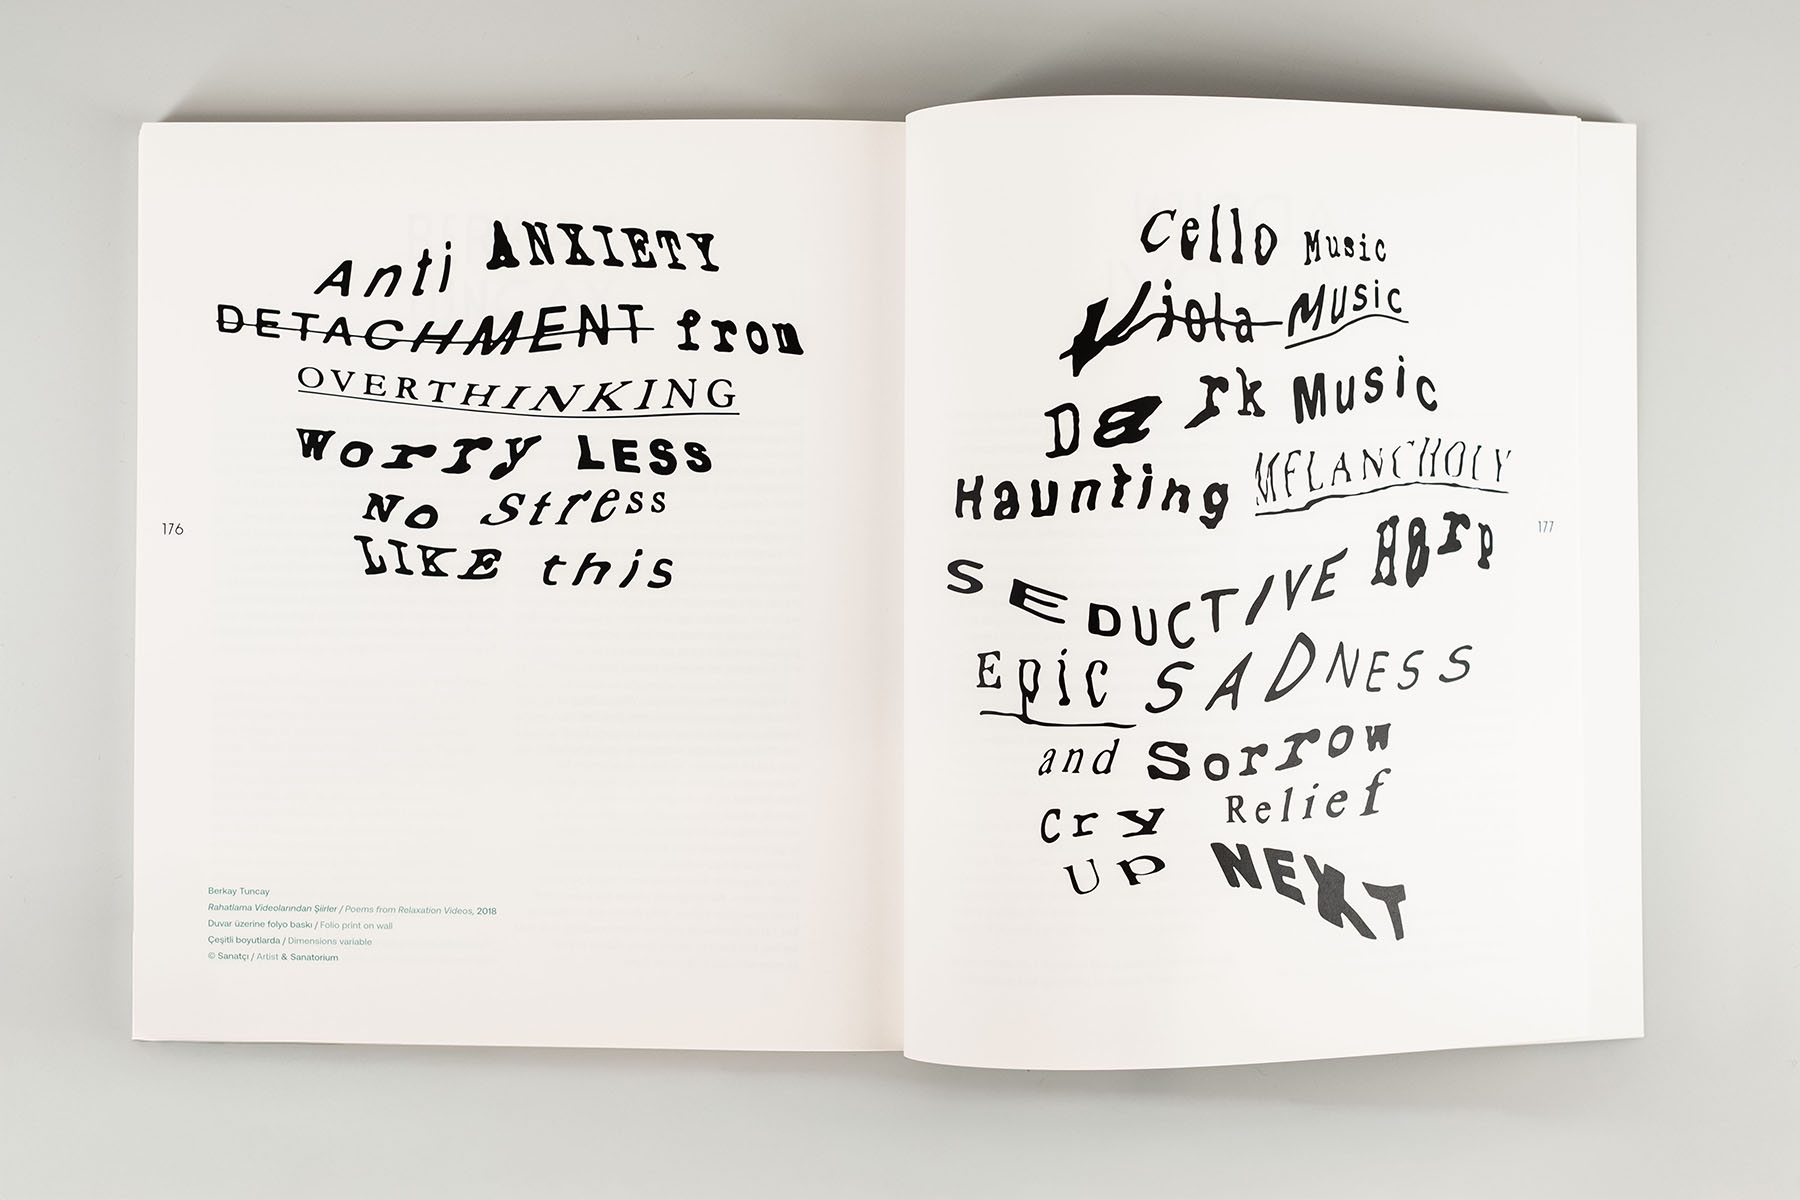 Anti ANXIETY
DETACHMENT from
OVERTHINKING
Worry LESS
No Stress
LIKE this
176
Berkay Tuncay
Rahatlama Videolarından Şiirler / Poems from Relaxation Videos, 2018
Duvar üzerine folyo baskı / Folio print on wall
Çeşitli boyutlarda / Dimensions variable
© Sanatçı / Artist & Sanatorium
Cello Music
Viola Music
Dark Music
Haunting MELANCHOLY
SEDUCTIVE Harp
Epic SADNESS
and Sorrow
Cry Relief
Up NEXT
177